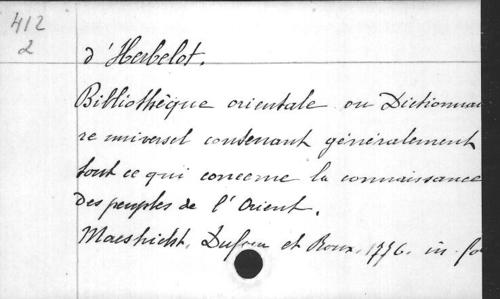 412
2
d'Herbelot.
Bibliothèque orientale ou Dictionnai
re universel contenant généralement
tout ce qui concerne la connaissance
des peuples de l'Orient.
Maestricht, Dufour et Roux, 1776. in-fo